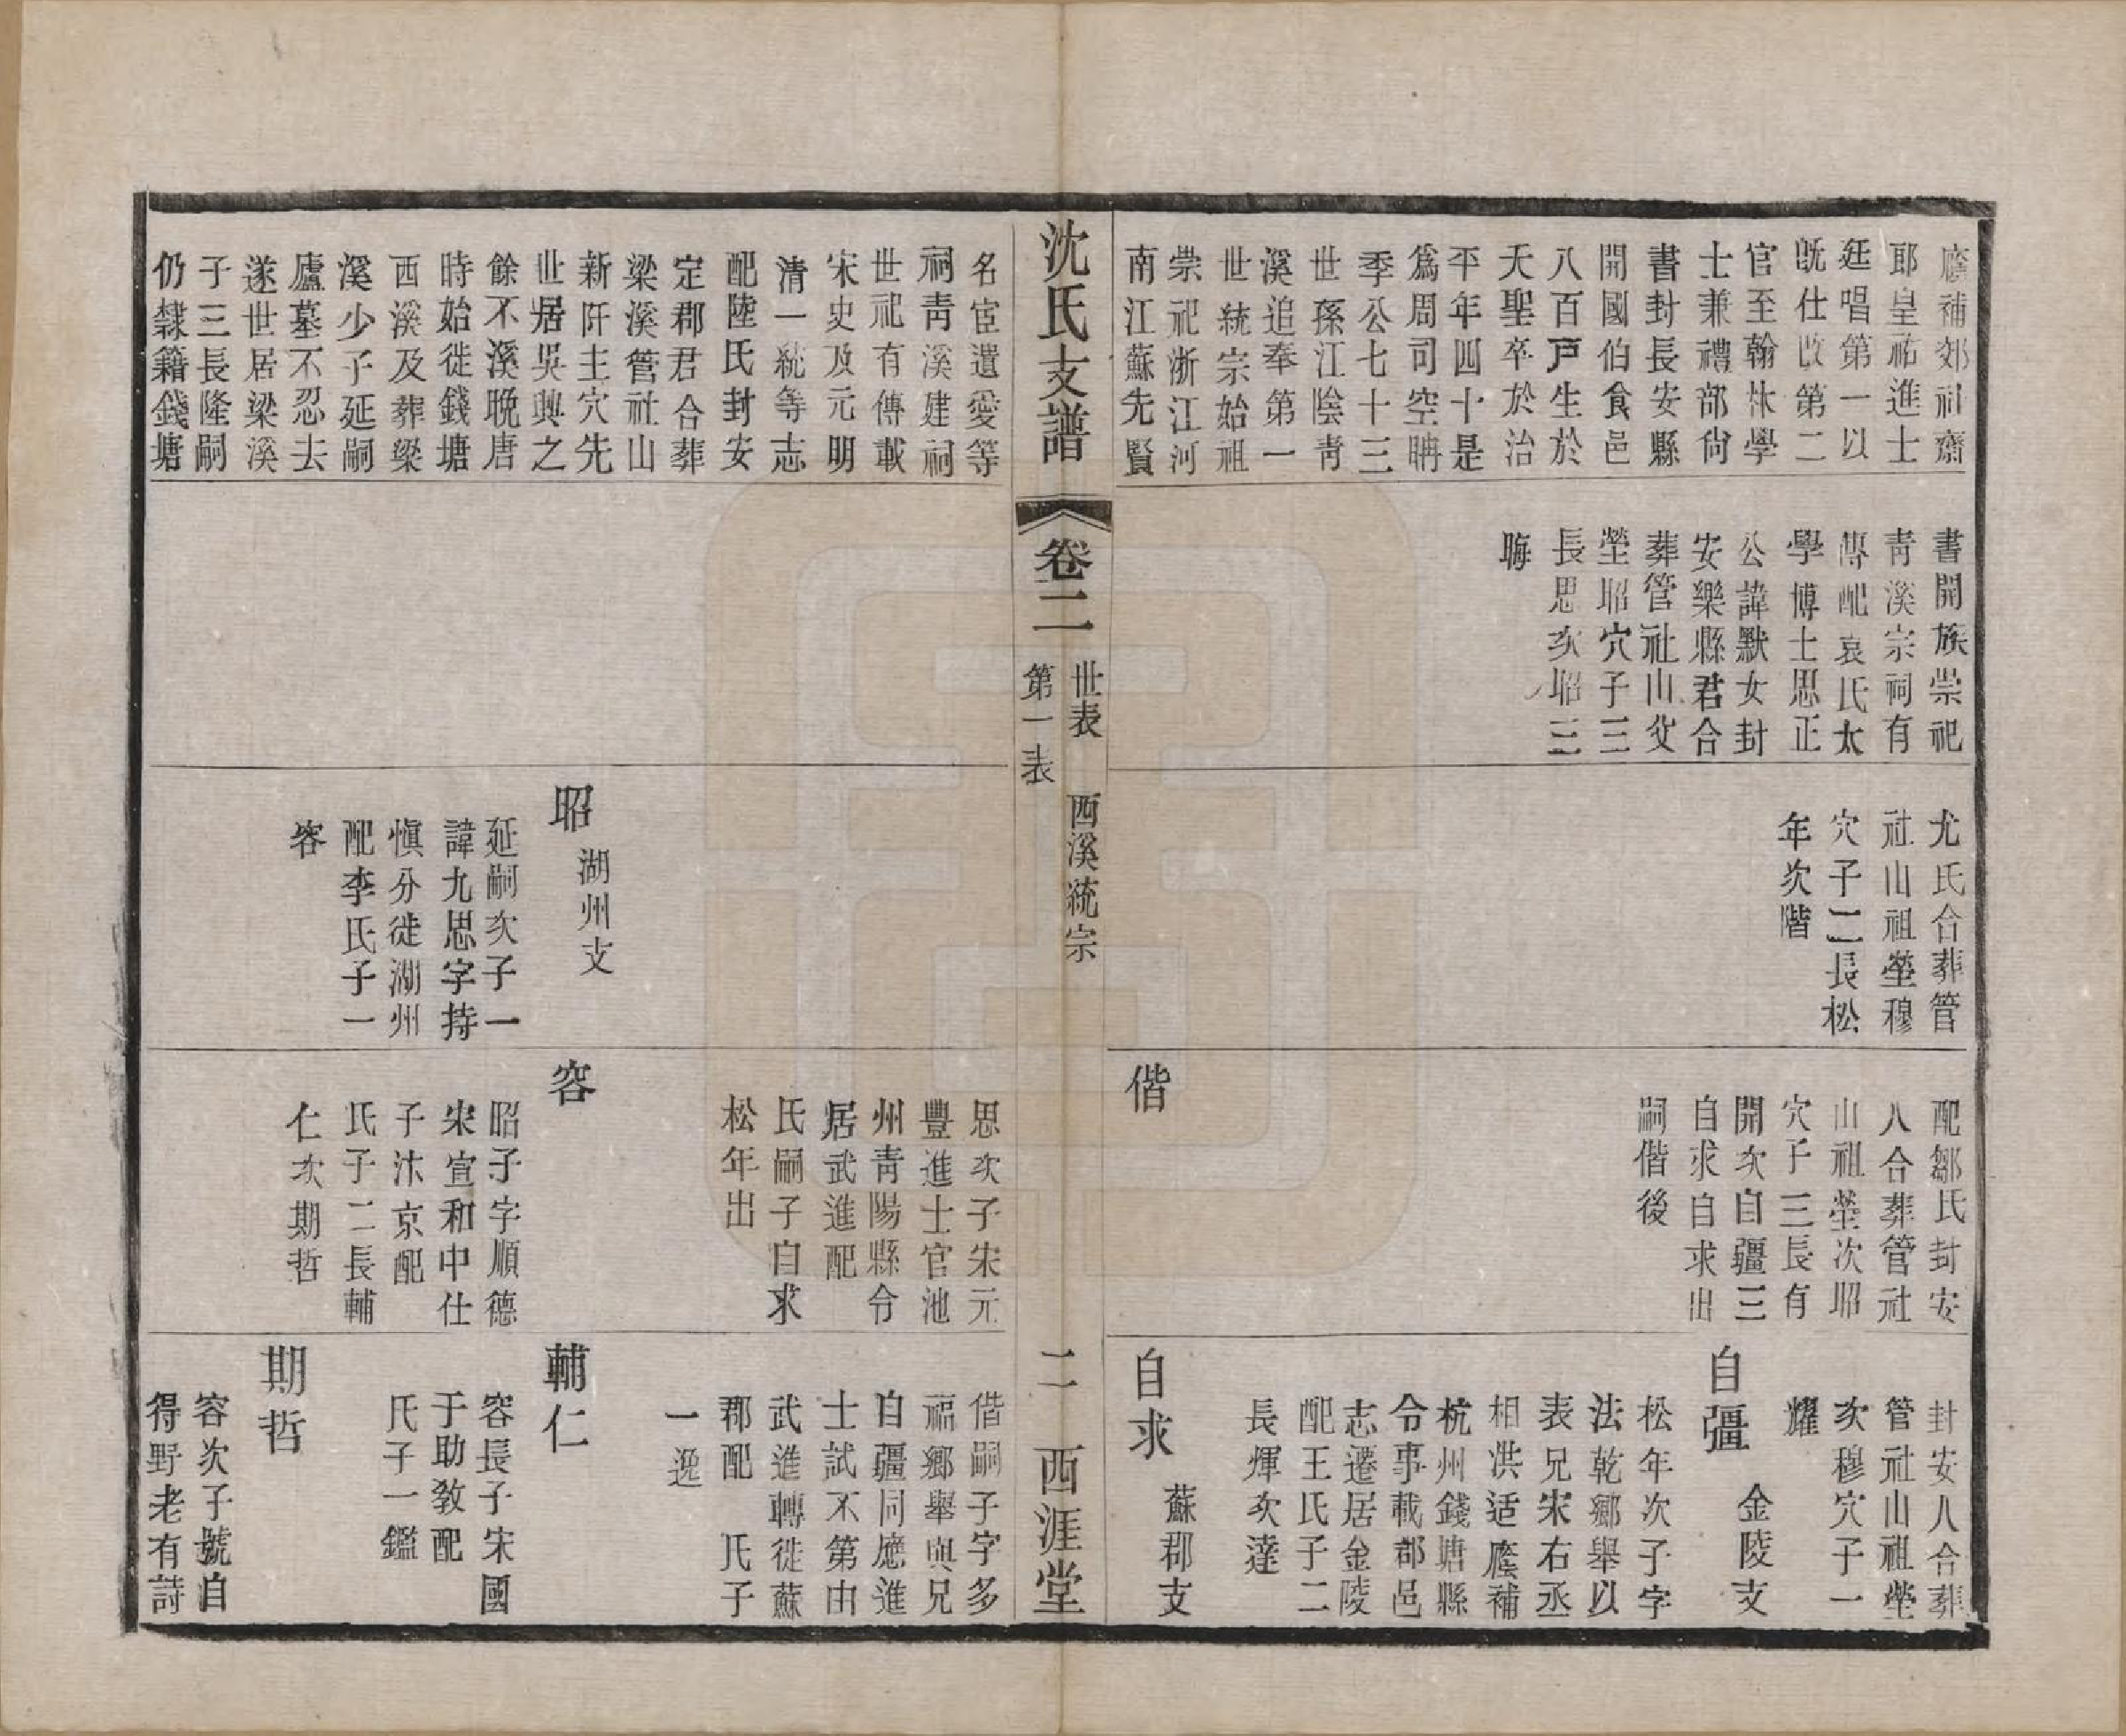 廕補郊社齋
郎皇祐進士
廷唱第一以
旣仕改第二
官至翰林學
士兼禮部尙
書封長安縣
開國伯食邑
八百戸生於
天聖卒於治
平年四十是
爲周司空聃
季公七十三
世孫江陰靑
溪追奉第一
世統宗始祖
崇祀浙江河
南江蘇先賢
書開族崇祀
靑溪宗祠有
傳配袁氏太
學博士思正
公諱默女封
安樂縣君合
葬管社山父
塋昭穴子三
長思次昭三
晦
尤氏合葬管
社山祖塋穆
穴子二長松
年次階
配鄒氏封安
人合葬管社
山祖塋次昭
穴子三長有
開次自疆三
自求自求出
嗣偕後
偕
封安人合葬
管社山祖塋
次穆穴子一
耀
自彊 金陵支
松年次子字
法乾鄉舉以
表兄宋右丞
相洪适廕補
杭州錢塘縣
令事載郡邑
志遷居金陵
配王氏子二
長煇次達
自求 蘇郡支
沈氏支譜 卷二 世表 第一表 西溪統宗 二 西涯堂
名宦遺愛等
祠靑溪建祠
世祀有傳載
宋史及元明
清一統等志
配陸氏封安
定郡君合葬
梁溪管社山
新阡主穴先
世居吳興之
餘不溪晚唐
時始徙錢塘
西溪及葬梁
溪少子延嗣
廬墓不忍去
遂世居梁溪
子三長隆嗣
仍隸籍錢塘
昭 湖州支
延嗣次子一
諱九思字持
愼分徙湖州
配李氏子一
容
思次子宋元
豐進士官池
州靑陽縣令
居武進配
氏嗣子自求
松年出
容
昭子字順德
宋宣和中仕
于汴京配
氏子二長輔
仁次期哲
偕嗣子字多
福鄉舉與兄
自疆同應進
士試不第由
武進轉徙蘇
郡配 氏子
一逸
輔仁
容長子宋國
子助敎配
氏子一鑑
期哲
容次子號自
得野老有詩